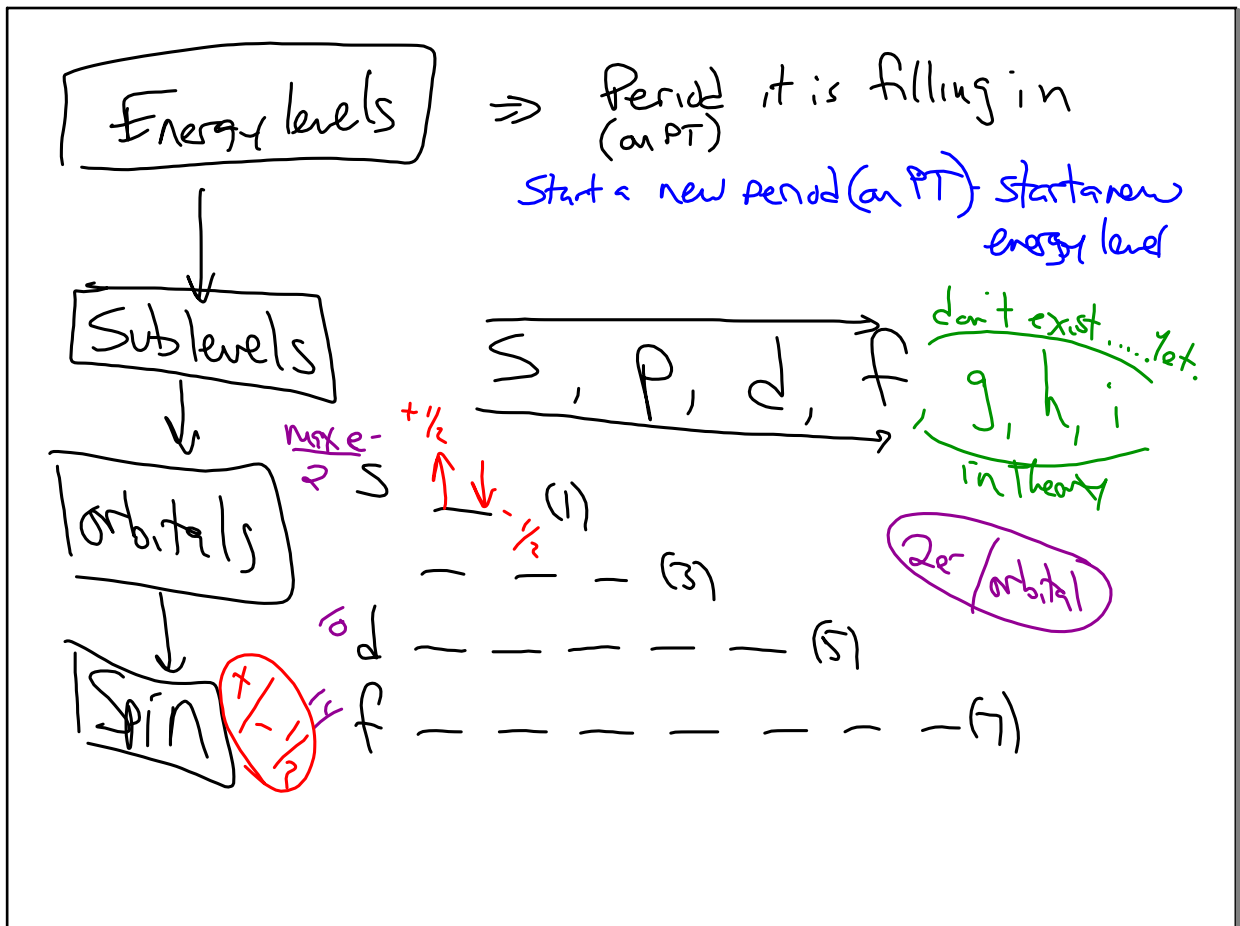 Energy levels ⇒ Period it is filling in
(on PT)
Start a new period (on PT) - start a new
energy level
Sublevels
S, p, d, f, g, h, i
don't exist.....Yet.
in theory
orbitals
max e-
2 S +1/2 -1/2 (1)
(3)
10 d (5)
14 f (7)
2e-/orbital
Spin +/- 1/2